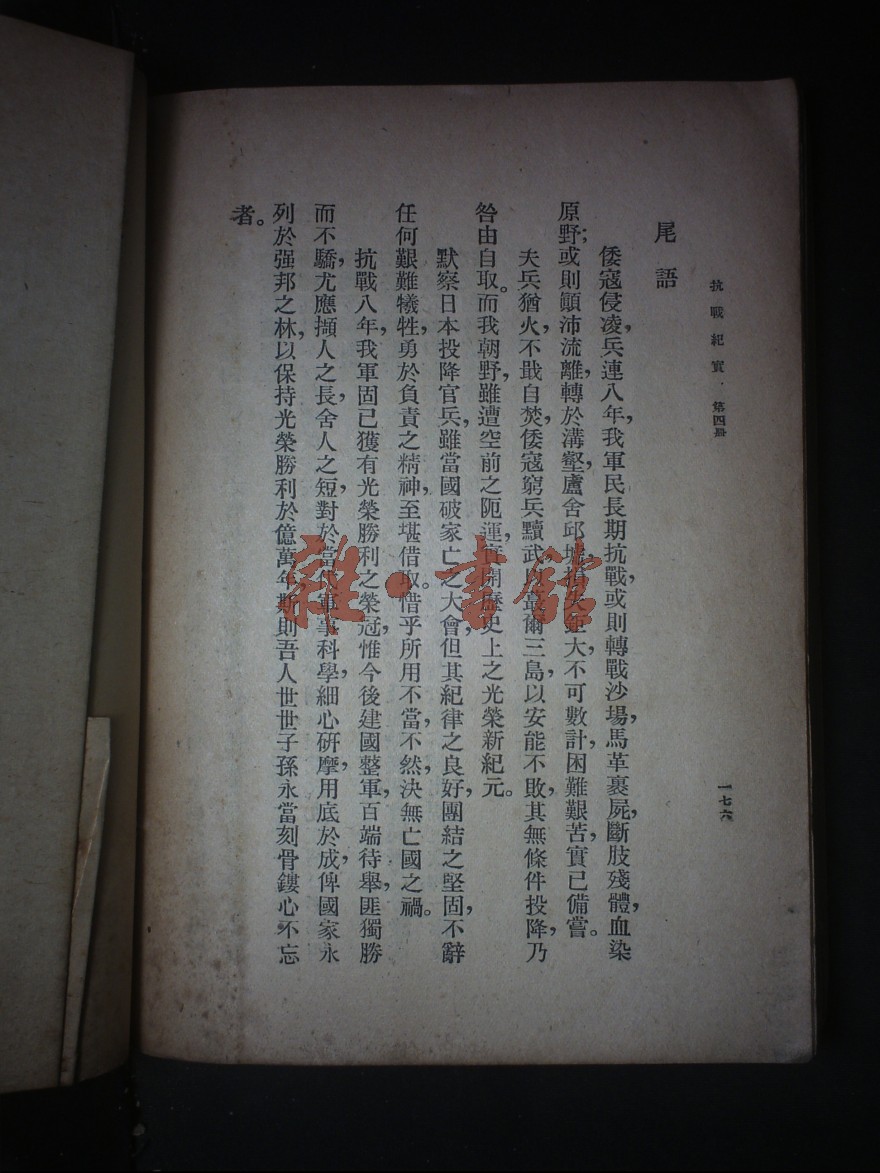 抗戰紀實．第四册
一七六
尾語
倭寇侵凌，兵連八年，我軍民長期抗戰，或則轉戰沙場，馬革裹屍，斷肢殘體，血染
原野；或則顚沛流離，轉於溝壑，廬舍邱墟，損失鉅大，不可數計，困難艱苦，實已備嘗。
夫兵猶火，不戢自焚，倭寇窮兵黷武，以蕞爾三島，以安能不敗，其無條件投降，乃
咎由自取。而我朝野，雖遭空前之阨運，實開歷史上之光榮新紀元。
默察日本投降官兵，雖當國破家亡之大會，但其紀律之良好，團結之堅固，不辭
任何艱難犧牲，勇於負責之精神，至堪借取。惜乎所用不當，不然決無亡國之禍。
抗戰八年，我軍固已獲有光榮勝利之榮冠，惟今後建國整軍，百端待舉，匪獨勝
而不驕，尤應擷人之長，舍人之短，對於當代軍事科學，細心硏摩，用底於成，俾國家永
列於强邦之林，以保持光榮勝利於億萬年，斯則吾人世世子孫永當刻骨鏤心不忘
者。
雜·書館